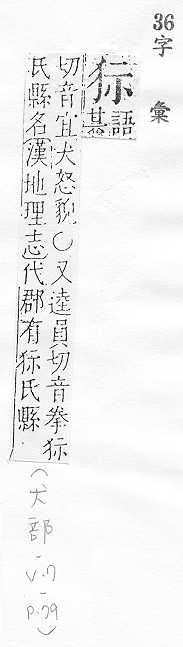 36
字彙
狋
語
基
切音宜犬怒貌○又逵員切音拳狋
氏縣名漢地理志代郡有狋氏縣
(犬部-V.7-P.79)